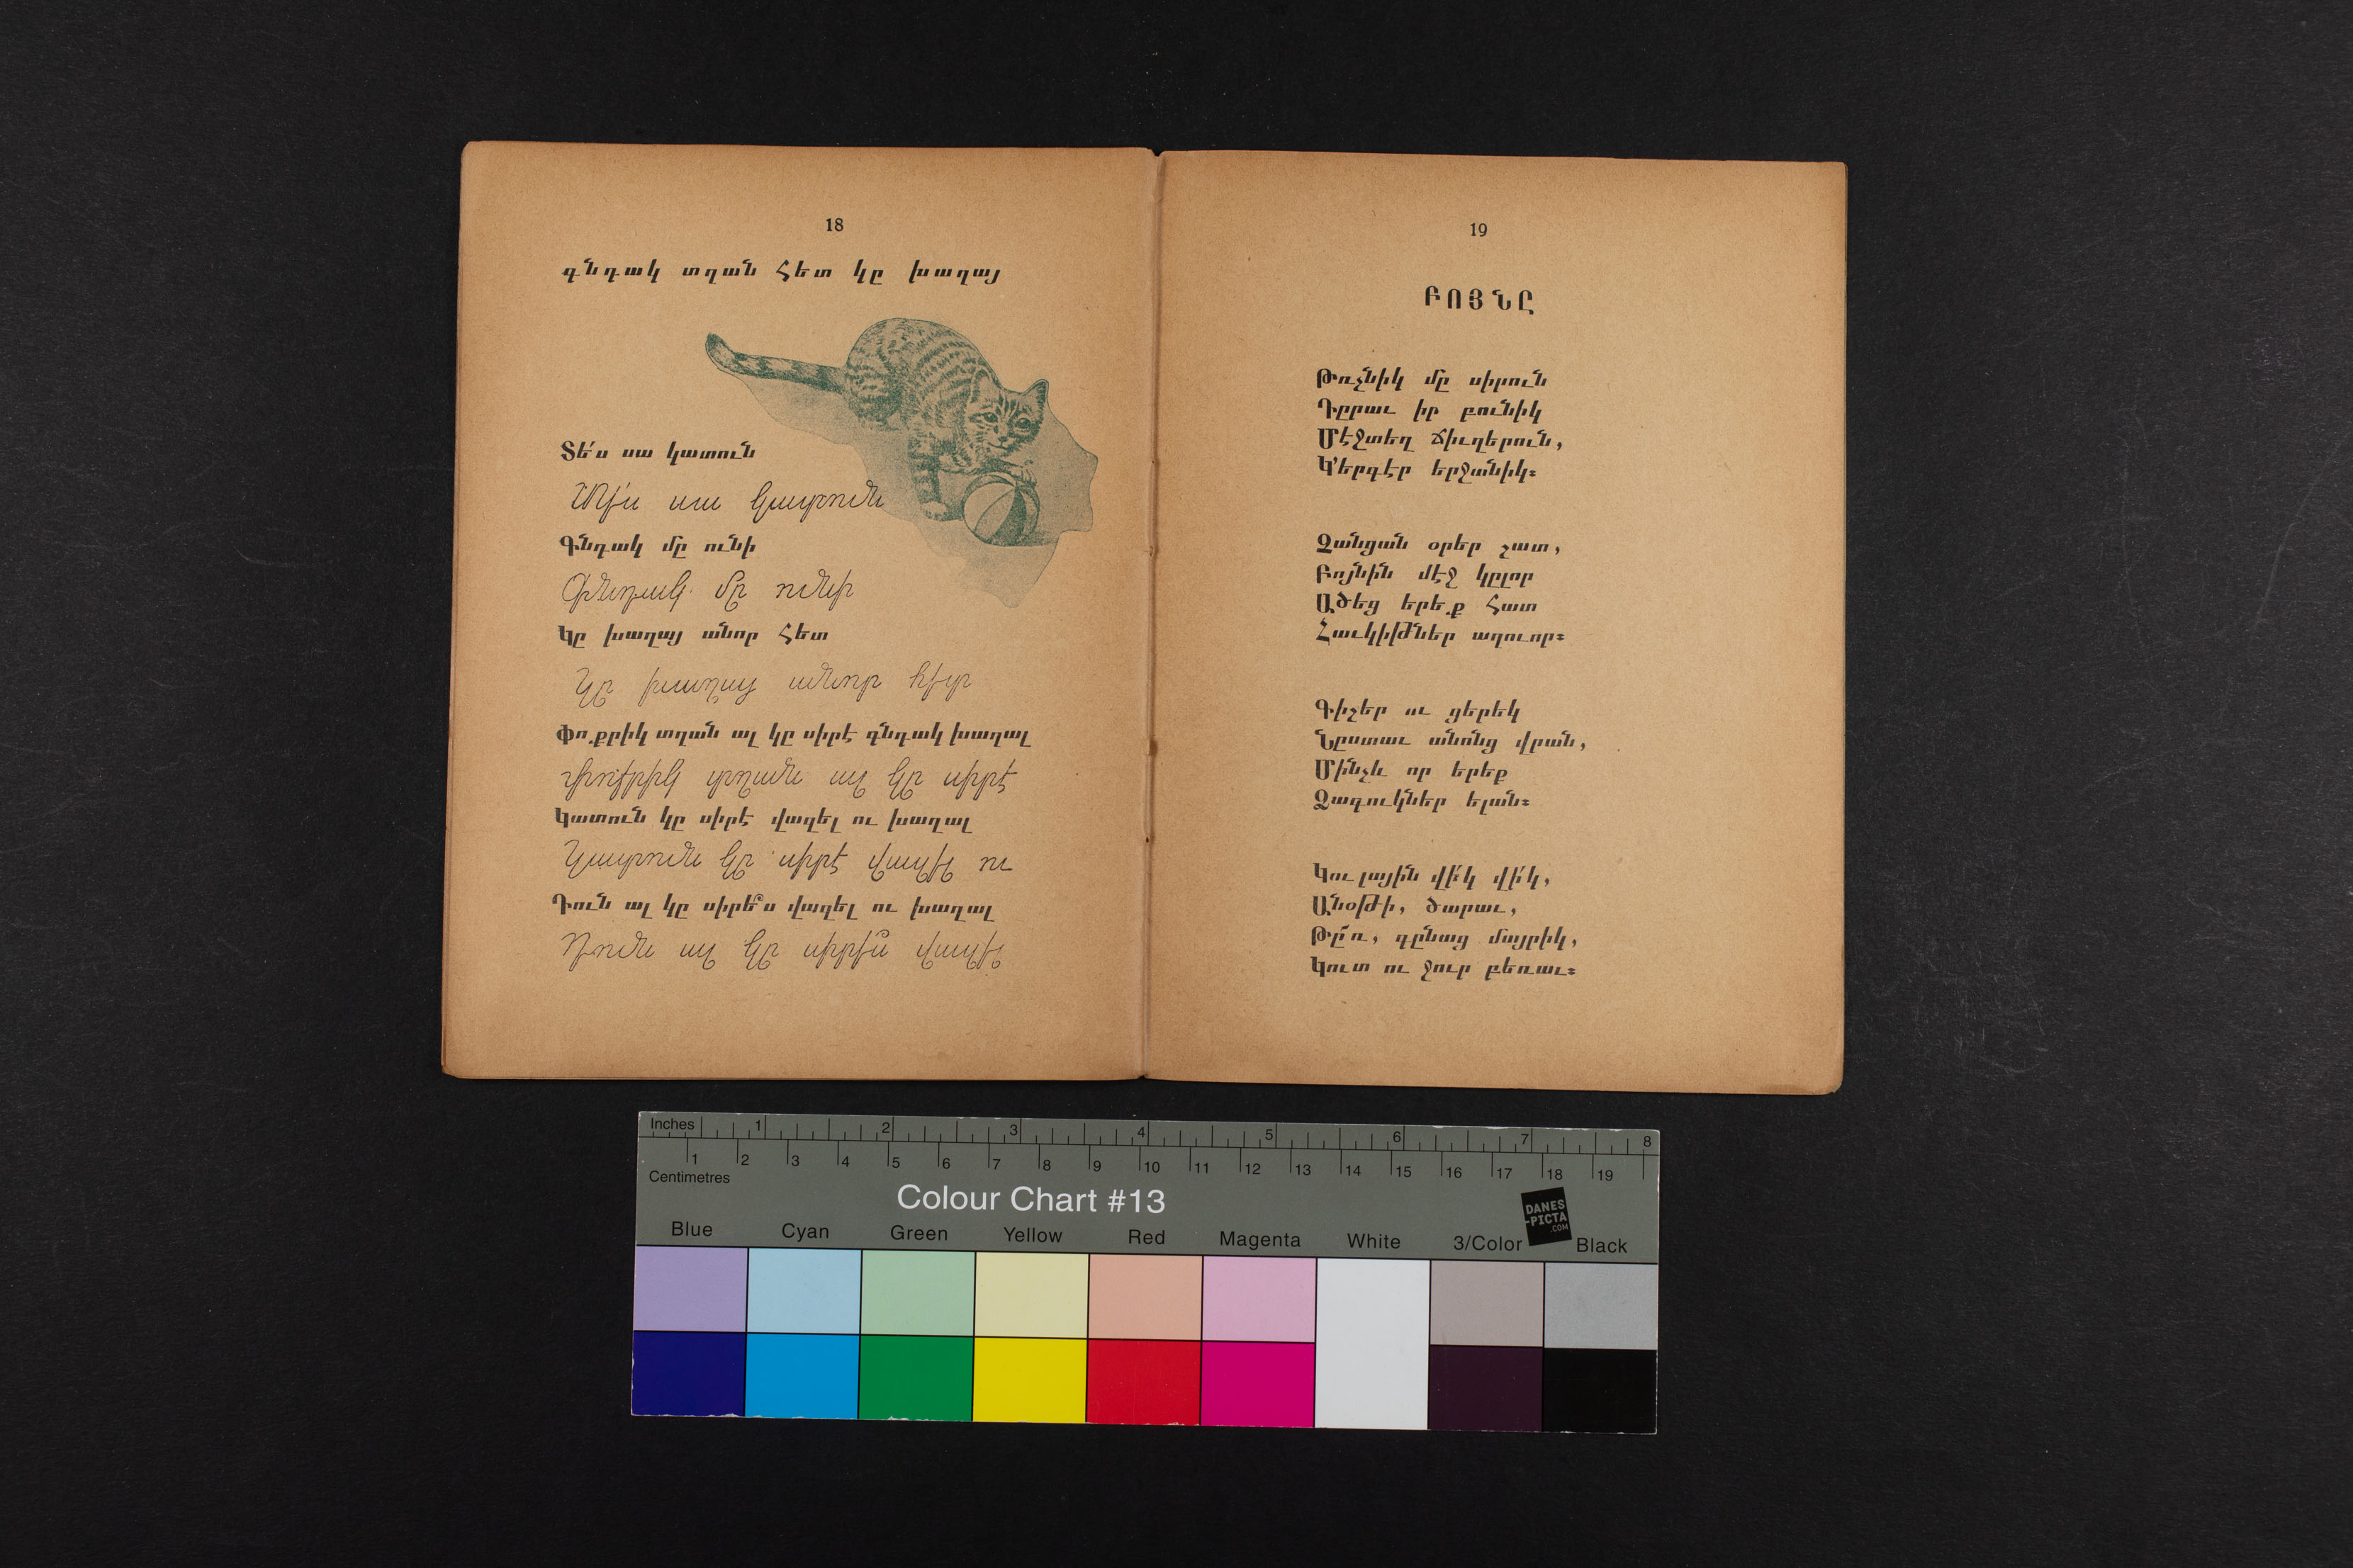 18
գնդակ տղան հետ կը խաղայ
Տե՛ս սա կատուն
Տե՛ս սա կատուն
Գնդակ մը ունի
Գնդակ մը ունի
Կը խաղայ անոր հետ
Կը խաղայ անոր հետ
Փոքրիկ տղան ալ կը սիրէ գնդակ խաղալ
Փոքրիկ տղան ալ կը սիրէ
Կատուն կը սիրէ վազել ու խաղալ
Կատուն կը սիրէ վազել ու
Դուն ալ կը սիրե՞ս վազել ու խաղալ
Դուն ալ կը սիրե՞ս վազել
19
ԲՈՅՆԸ
Թռչնիկ մը սիրուն
Դըրաւ իր բունիկ
Մէջտեղ ճիւղերուն,
Կ'երգէր երջանիկ։
Չանցան օրեր շատ,
Բոյնին մէջ կըլոր
Ածեց երեք հատ
Հաւկիթներ աղուոր։
Գիշեր ու ցերեկ
Նըստաւ անոնց վրան,
Մինչև որ երեք
Ձագուկներ ելան։
Կու լային վի՜կ վի՜կ,
Անօթի, ծարաւ,
Թը՜ռ, գընաց մայրիկ,
Կուտ ու ջուր բեռաւ։
Inches 1 2 3 4 5 6 7 8
1 2 3 4 5 6 7 8 9 10 11 12 13 14 15 16 17 18 19
Centimetres
Colour Chart #13
DANES
-PICTA
.COM
Blue Cyan Green Yellow Red Magenta White 3/Color Black